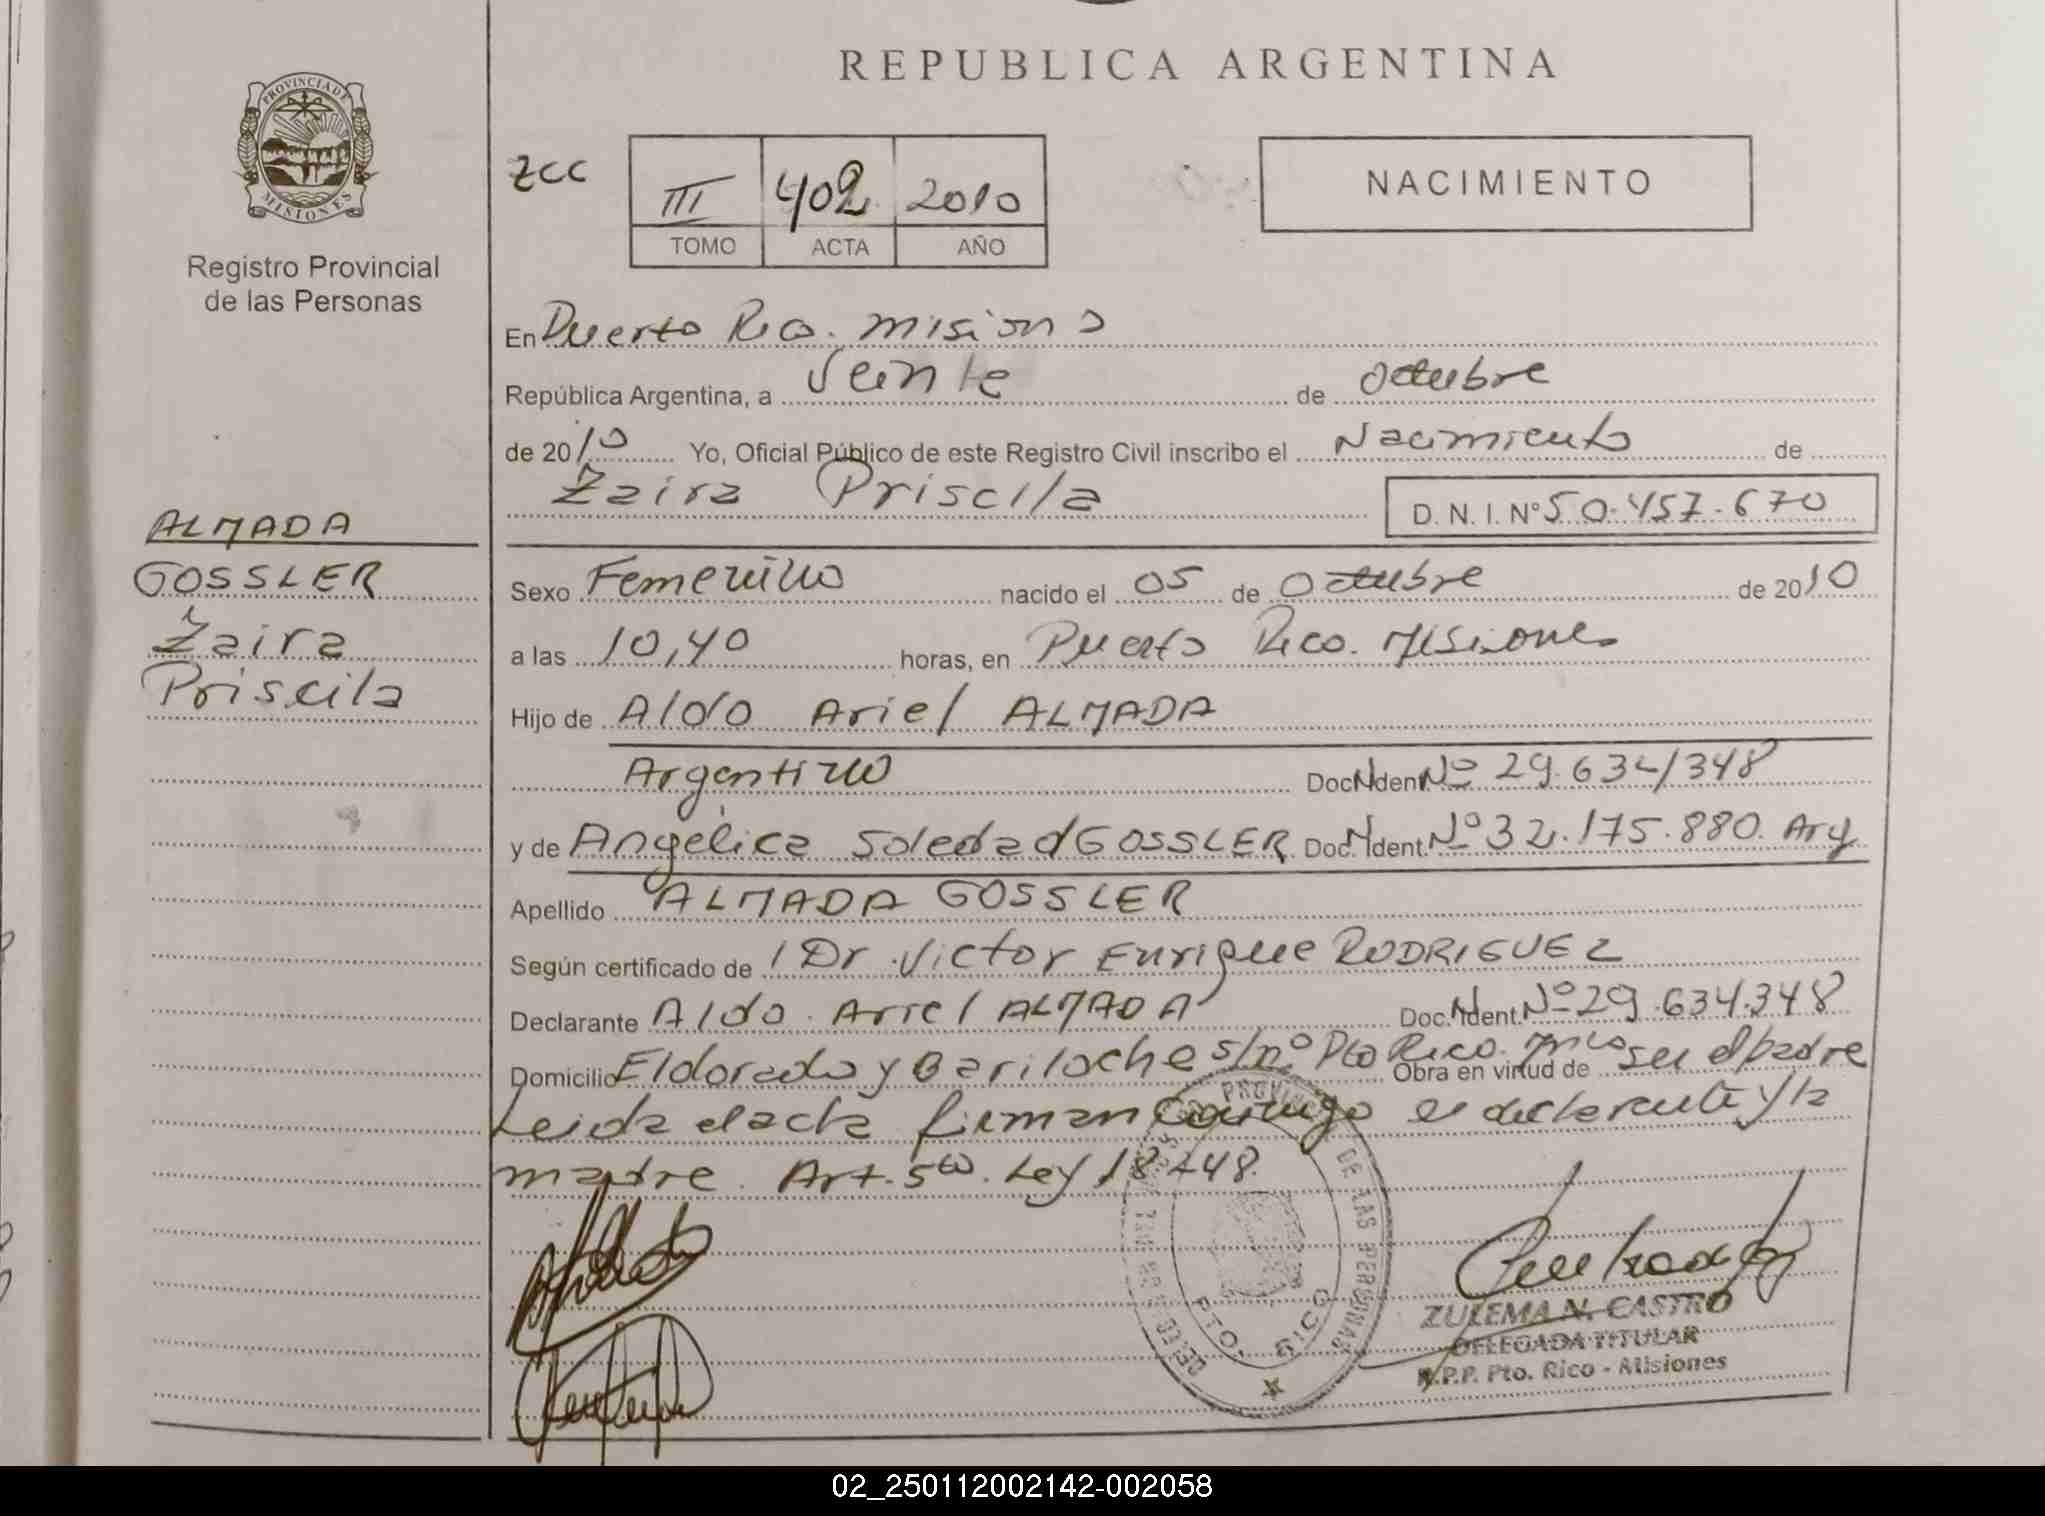 REPUBLICA ARGENTINA
PROVINCIA DE
MISIONES
Registro Provincial
de las Personas
ZCC
III 402 2010
TOMO ACTA AÑO
NACIMIENTO
En Puerto Rico. Misiones
República Argentina, a Veinte de Octubre
de 2010 Yo, Oficial Público de este Registro Civil inscribo el Nacimiento de
Zaira Priscila D. N. I. Nº 50.457.670
ALMADA
GOSSLER
Zaira
Priscila
Sexo Femenino nacido el 05 de Octubre de 2010
a las 10,40 horas, en Puerto Rico. Misiones
Hijo de Aldo Ariel ALMADA
Argentino Doc. Ident. Nº 29.634/348
y de Angélica Soledad GOSSLER Doc. Ident. Nº 32.175.880. Arg
Apellido ALMADA GOSSLER
Según certificado de Dr. Victor Enrique RODRIGUEZ
Declarante Aldo Ariel ALMADA Doc. Ident. Nº 29.634.348
Domicilio Eldorado y Bariloche s/nº Pto Rico. Obra en virtud de ser el padre
Leida el acta firman conmigo el declarante y la
madre. Art. 5to. Ley 18248.
DE LAS PERSONAS
PTO. RICO
ZULEMA N. CASTRO
DELEGADA TITULAR
R.P.P. Pto. Rico - Misiones
02_250112002142-002058